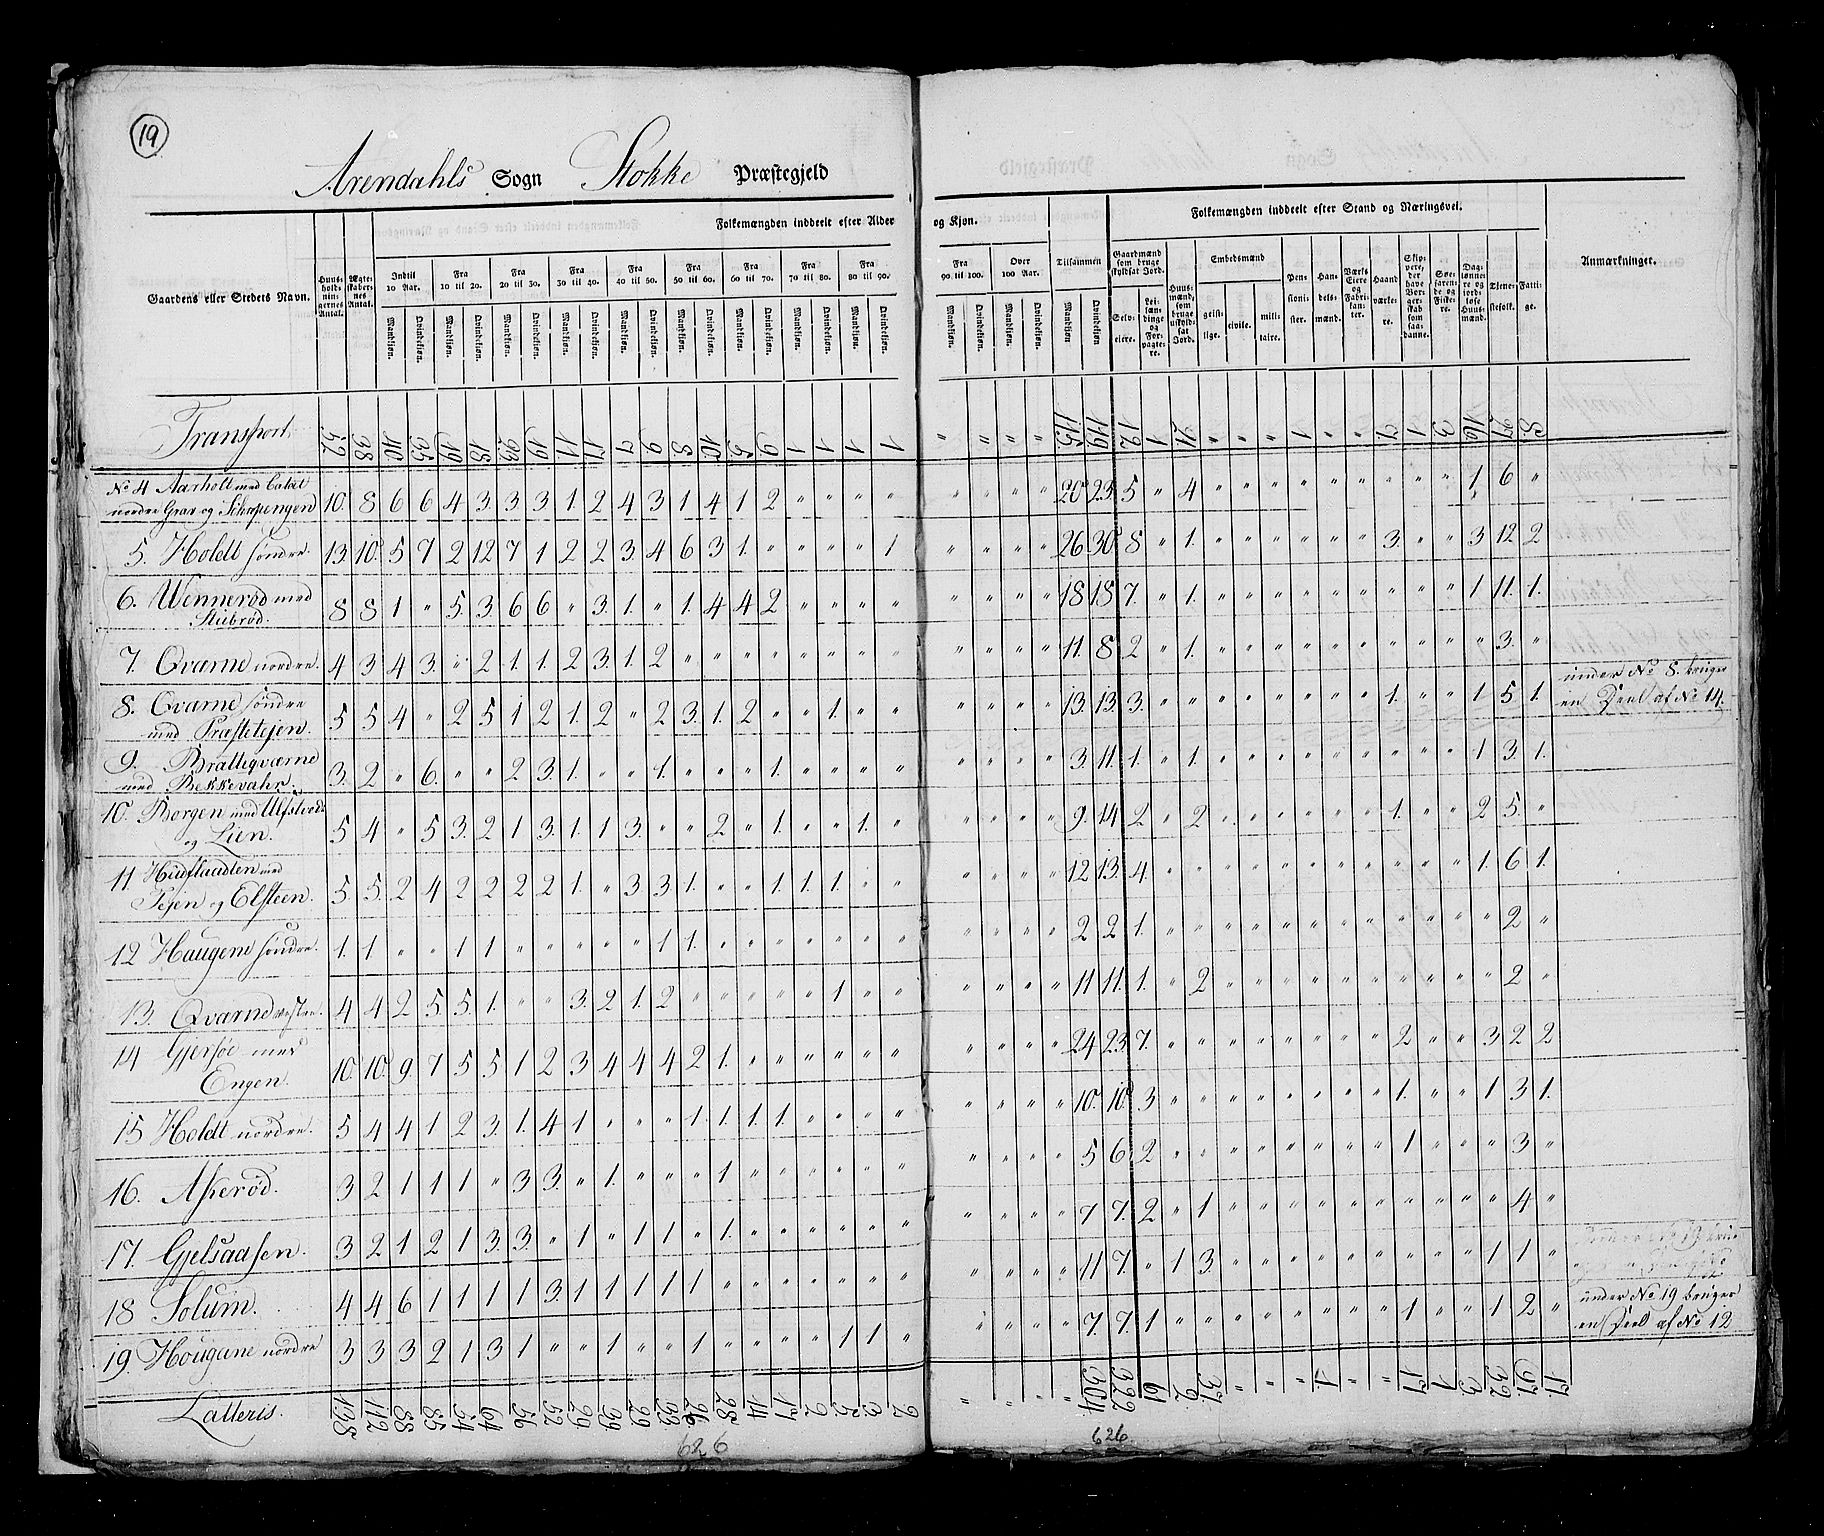 19
Arendahls Sogn Stokke Præstegjeld
Folkemængden inddeelt efter Alder og Kjøn.
Folkemængden inddeelt efter Stand og Næringsvei.
Gaardens eller Stedets Navn.
Huusholdningernes Antal.
Ægteskabernes Antal.
Indtil 10 Aar.
Fra 10 til 20.
Fra 20 til 30.
Fra 30 til 40.
Fra 40 til 50.
Fra 50 til 60.
Fra 60 til 70.
Fra 70 til 80.
Fra 80 til 90.
Fra 90 til 100.
Over 100 Aar.
Tilsammen
Mandkjøn. Qvindekjøn.
Gaardmænd som bruge skyldsat Jord.
Selveiere.
Leilændinge og Forpagtere.
Huusmænd, som bruge uskyldsat Jord.
Embedsmænd
geistlige.
civile.
militaire.
Pensionister.
Handelsmænd.
Værks Eiere og Fabrikanter.
Haandværkere.
Skippere, der have Borgerskab som saadanne.
Søefarende og Fiskere.
Daglønnere og jordløse Huusmænd.
Tjenestefolk.
Fattige.
Anmærkninger.
Transport. 52. 38. 40. 35. 19. 18. 23. 19. 11. 17. 7. 9. 8. 10. 5. 9. 1 1 1 1 " " " " 115. 119. 12. 1 21. " " " 1 " " 7. 1 3. 16. 27. 8.
No 4 Aarholt med
nordre Grav og 10. 8 6 6 4 3. 3 3 1. 2 4 3 1 4 1 2 " " " " " " " " 20 23. 5 " 4 " " " " " " " " " 1. 6 "
5. Holdt søndre. 13. 10. 5 7 2 12 7 1 2 2 3 4 6 3 1. " " " " 1 " " " " 26. 30 8 " 1. " " " " " " 3. " " 3 12 2
6. Wennerød med
Stubrød. 8 8 1 " 5 3 6 6 " 3. 1. " 1. 4 4 2 " " " " " " " " 18 18 7. " 1. " " " " " " " " " 1 11. 1.
7. Qvarne nordre. 4 3 4 3. " 2 1. 1. 2 3. 1. 2 " " " " " " " " " " " " 11. 8 2 " 1. " " " " " " " " " " 3. "
8. Qvarne søndre
med Præstetejen. 5 5 4 " 2 5 1 2 1. 2 " 2 3. 1. 2 " " 1. " " " " " " 13. 13. 3. " " " " " " " " 1. " " 1 5 1. under No 8. bruger
en Deel af No 14.
9. Brattegværne
med Bekkevahr. 3. 2 " 6. " " 2 3. 1. " " 1. " " " 1. " " " " " " " " 3. 11. 1. " 1. " " " " " " " " " 1 3. 1.
10. Borgen med
og Lien. 5 4 " 5 3. 2 1 3. 1. 1 3. " " 2 " 1. " " 1. " " " " " 9. 14 2 " 2 " " " " " " 1. " " 2 5. "
11 med
Tejen og Elsteen. 5. 5. 2 4 2 2 2 2 1. " 3 3 1. " " 1. 1. 1. " " " " " " 12 13. 4. " " " " " " " " " " " 1. 6 1.
12 Haugene søndre. 1. 1 " " 1 1 " " " " " 1 1. " " " " " " " " " " " 2 2 1. " " " " " " " " " " " " 2 "
13. Qvarne vestre. 4 4 2 5 5 1. " " 3. 2 1. 2 " " " " " 1 " " " " " " 11 11. 1. " 2 " " " " " " " " " " 2 "
14 Gjersøe med
Engen. 10. 10. 9. 7 5 5 1 2 3 4 4 4 2 1. " " " " " " " " " " 24 23. 7. " " " " " " " " 2 " " 3 2 2
15 Holdt nordre. 5 4 4 1 2 3. 1. 4 1 " " " 1. 1. 1. 1. " " " " " " " " 10. 10 3 " " " " " " " " 1. " " 1 3 1.
16. Askerød. 3 2 1 1 1 " 3 3. " 1. " " " 1 " " " " " " " " " " 5 6 2 " " " " " " " " 1 " " " 3 "
17. Gjelsaasen. 3 2 1 2 1 3. 3. " 1 " 1 1 " 1. " " " " " " " " " " 7 7. 2 " 1 " " " " " " " " " " 4 "
18 Solum. 4 4 6 1 1 1 1 3. 1 1 1 1 1 " " " " " " " " " " " 11 7. " 1 3. " " " " " " " " " 1 1 "
19. Hougane nordre 3 3 3 2 1 3 1 " " 1 " " 1 " " " " 1 1 " " " " " 7. 7. 1 " " " " " " " " 1 " " 1 2 " under No 19 bruger
en Deel af No 12
Latteris. 138 112 88 85 54 64 56 52 29 39. 29. 33. 26 28 14 17 2 5. 3. 2 " " " " 304. 322 61 2. 37. " " " 1. " " 17 1 3. 32 97. 17.
626 626.